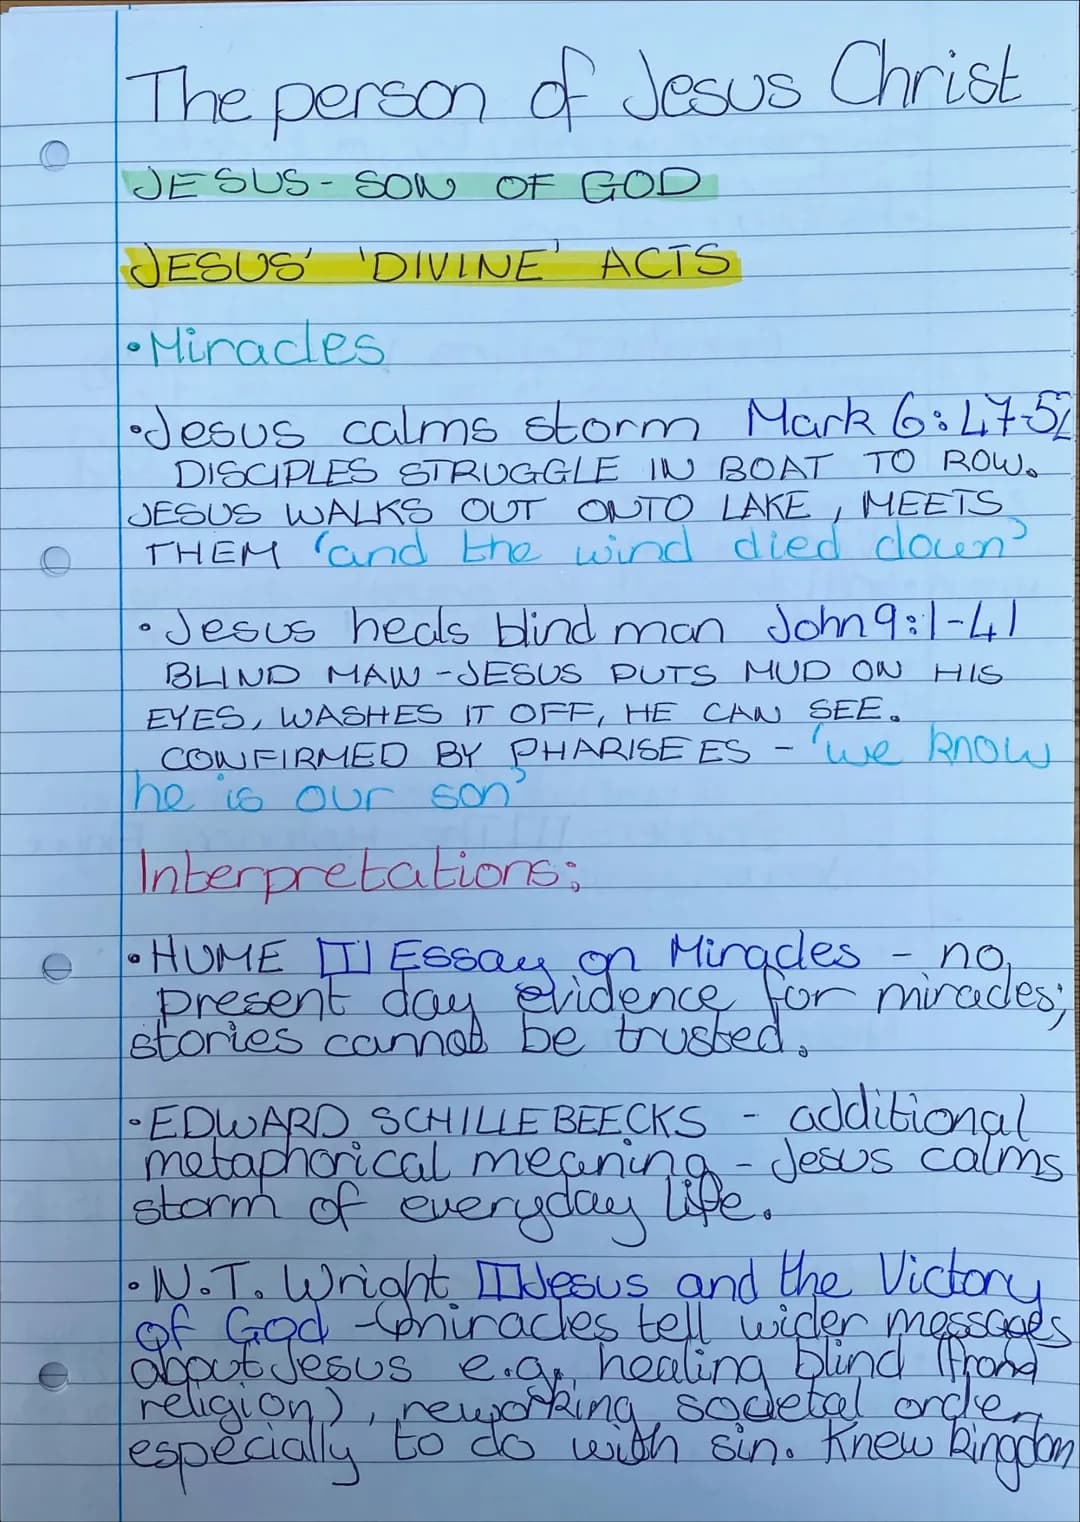 The person of Jesus Christ
JESUS - SON OF GOD
JESUS' 'DIVINE' ACTS
•Miracles
•Jesus calms storm Mark 6:47-52
DISCIPLES STRUGGLE IN BOAT TO ROW.
JESUS WALKS OUT ONTO LAKE, MEETS
THEM 'and the wind died down'
•Jesus heals blind man John 9:1-41
BLIND MAN - JESUS PUTS MUD ON HIS
EYES, WASHES IT OFF, HE CAN SEE.
CONFIRMED BY PHARISEES - 'we know
he is our son'
Interpretations:
•HUME Essay on Miracles - no
present day evidence for miracles;
stories cannot be trusted.
•EDWARD SCHILLEBEECKS - additional
metaphorical meaning - Jesus calms
storm of everyday life.
•N.T. Wright Jesus and the Victory
of God - miracles tell wider messages
about Jesus e.g. healing blind (from
religion), reworking societal order,
especially to do with sin. Knew kingdom